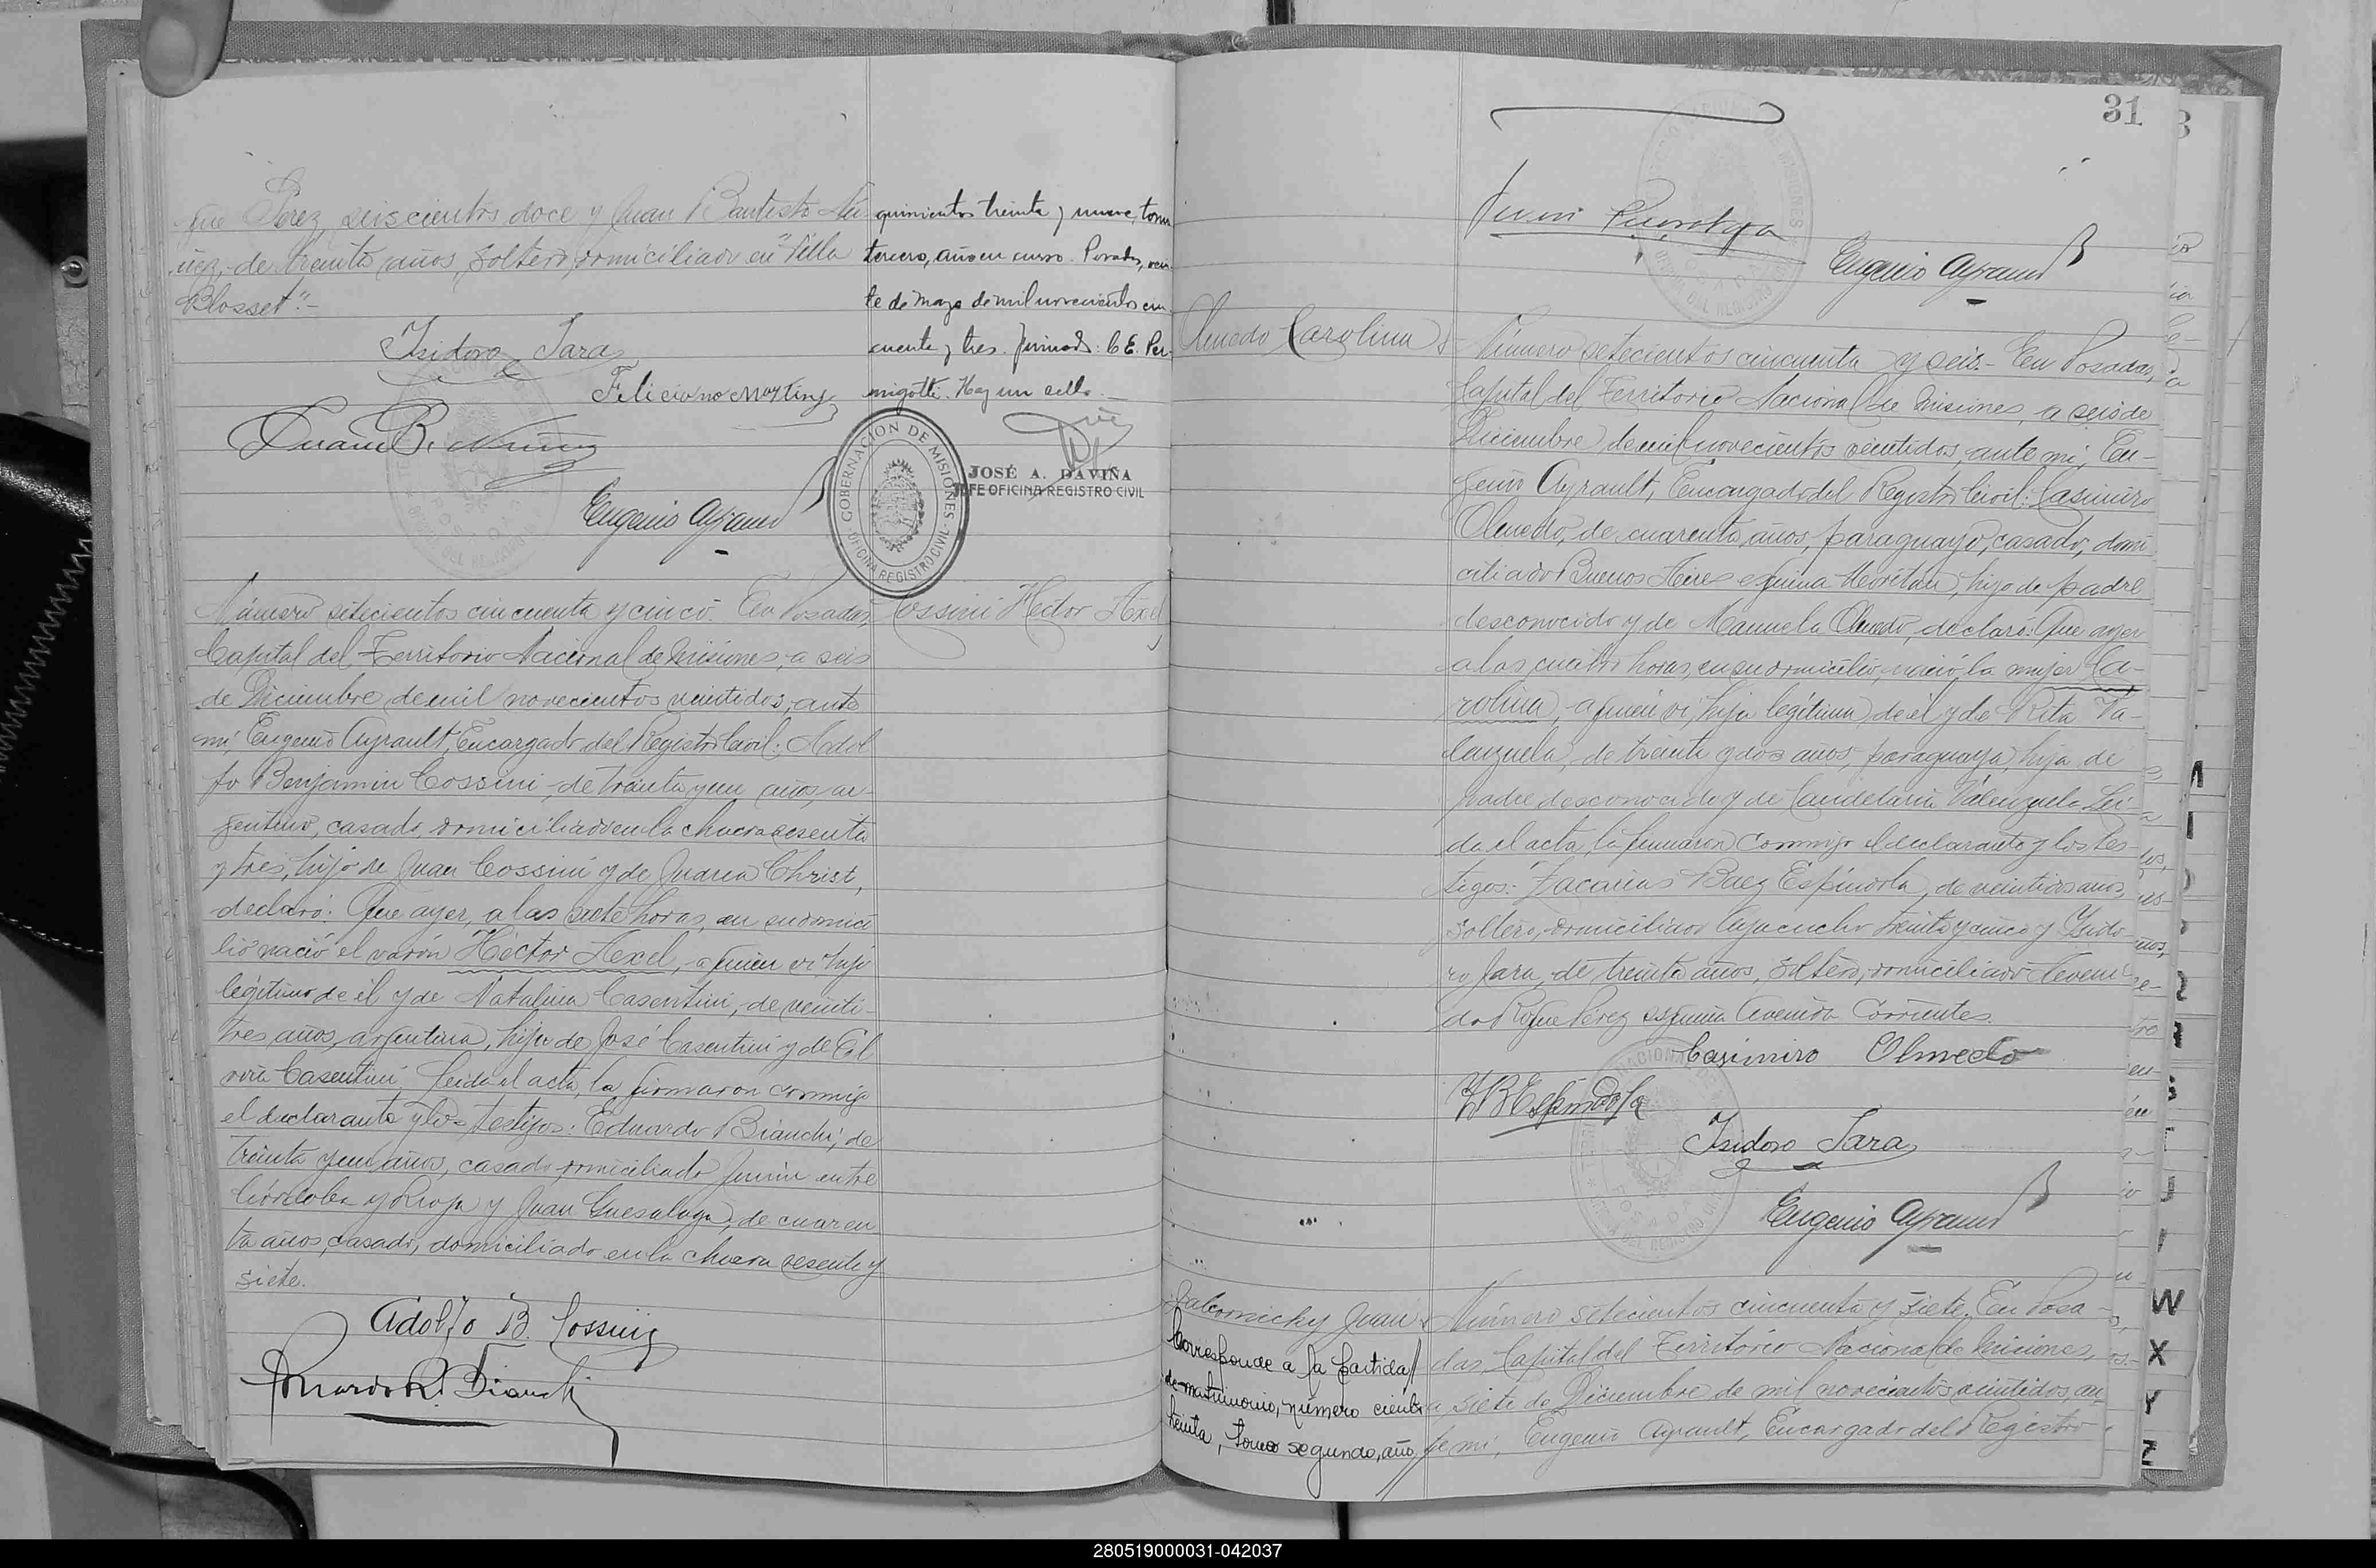 que Perez, seiscientos doce y Juan Bautista Nú-
ñez, de treinta años, soltero, domiciliado en "Villa
Blosset".-
Isidoro Jara
Feliciano Martinez
Juan B. Nuñez
Eugenio Ayrault
quinientos treinta y nueve, tomo
tercero, año en curso. Posadas, vein-
te de mayo de mil novecientos cin-
cuenta y tres. firmado: C. E. Per-
migotti. Hay un sello.-
GOBERNACIÓN DE MISIONES
OFICINA REGISTRO CIVIL
JOSÉ A. DAVIÑA
JEFE OFICINA REGISTRO CIVIL
Cossini Héctor Axel
Número setecientos cincuenta y cinco. En Posadas,
Capital del Territorio Nacional de Misiones, a seis
de Diciembre de mil novecientos veintidos, ante
mí, Eugenio Ayrault, Encargado del Registro Civil: Adol
fo Benjamin Cossini, de treinta y un años, ar-
gentino, casado, domiciliado en la chacra sesenta
y tres, hijo de Juan Cossini y de Juana Christ,
declaró: Que ayer, a las siete horas, en su domici
lio nació el varón Héctor Axel, a quien vi hijo
legítimo de él y de Natalina Casentini, de veinti-
tres años, argentina, hija de José Casentini y de
Casentini. Leida el acta, la firmaron conmigo
el declarante y los testigos: Eduardo Bianchi, de
treinta y un años, casado, domiciliado Junin entre
Córdoba y Rioja y Juan Guesalaga, de cuaren
ta años, casado, domiciliado en la chacra sesenta y
siete.
Adolfo B. Cossini
Eduardo R. Bianchi
31
Juan Guesalaga
Eugenio Ayrault
Olmedo Carolina
Número setecientos cincuenta y seis.- En Posadas,
Capital del Territorio Nacional de Misiones, a seis de
Diciembre de mil novecientos veintidos, ante mí, Eu-
genio Ayrault, Encargado del Registro Civil: Casimiro
Olmedo, de cuarenta años, paraguayo, casado, domi
ciliado Buenos Aires esquina Tucumán, hijo de padre
desconocido y de Manuela Olmedo, declaró: Que ayer
a las cuatro horas, en su domicilio, nació la mujer Ca-
rolina, a quien vi hija legítima de él y de Rita Va-
lenzuela, de treinta y dos años, paraguaya, hija de
padre desconocido y de Candelaria Valenzuela. Lei-
da el acta, la firmaron conmigo el declarante y los tes-
tigos: Zacarias Baez Espíndola, de veintidos años,
soltero, domiciliado Ayacucho treinta y cinco y Isido-
ro Jara, de treinta años, soltero, domiciliado Aveni-
da Roque Pérez esquina Avenida Corrientes.
Casimiro Olmedo
Z B Espindola
Isidoro Jara
Eugenio Ayrault
Juan
Corresponde a la partida
de matrimonio, número ciento
treinta, tomo segundo, año
Número setecientos cincuenta y siete. En Posa-
das, Capital del Territorio Nacional de Misiones,
a siete de Diciembre de mil novecientos veintidos, an
te mí, Eugenio Ayrault, Encargado del Registro
W
X
Y
Z
280519000031-042037